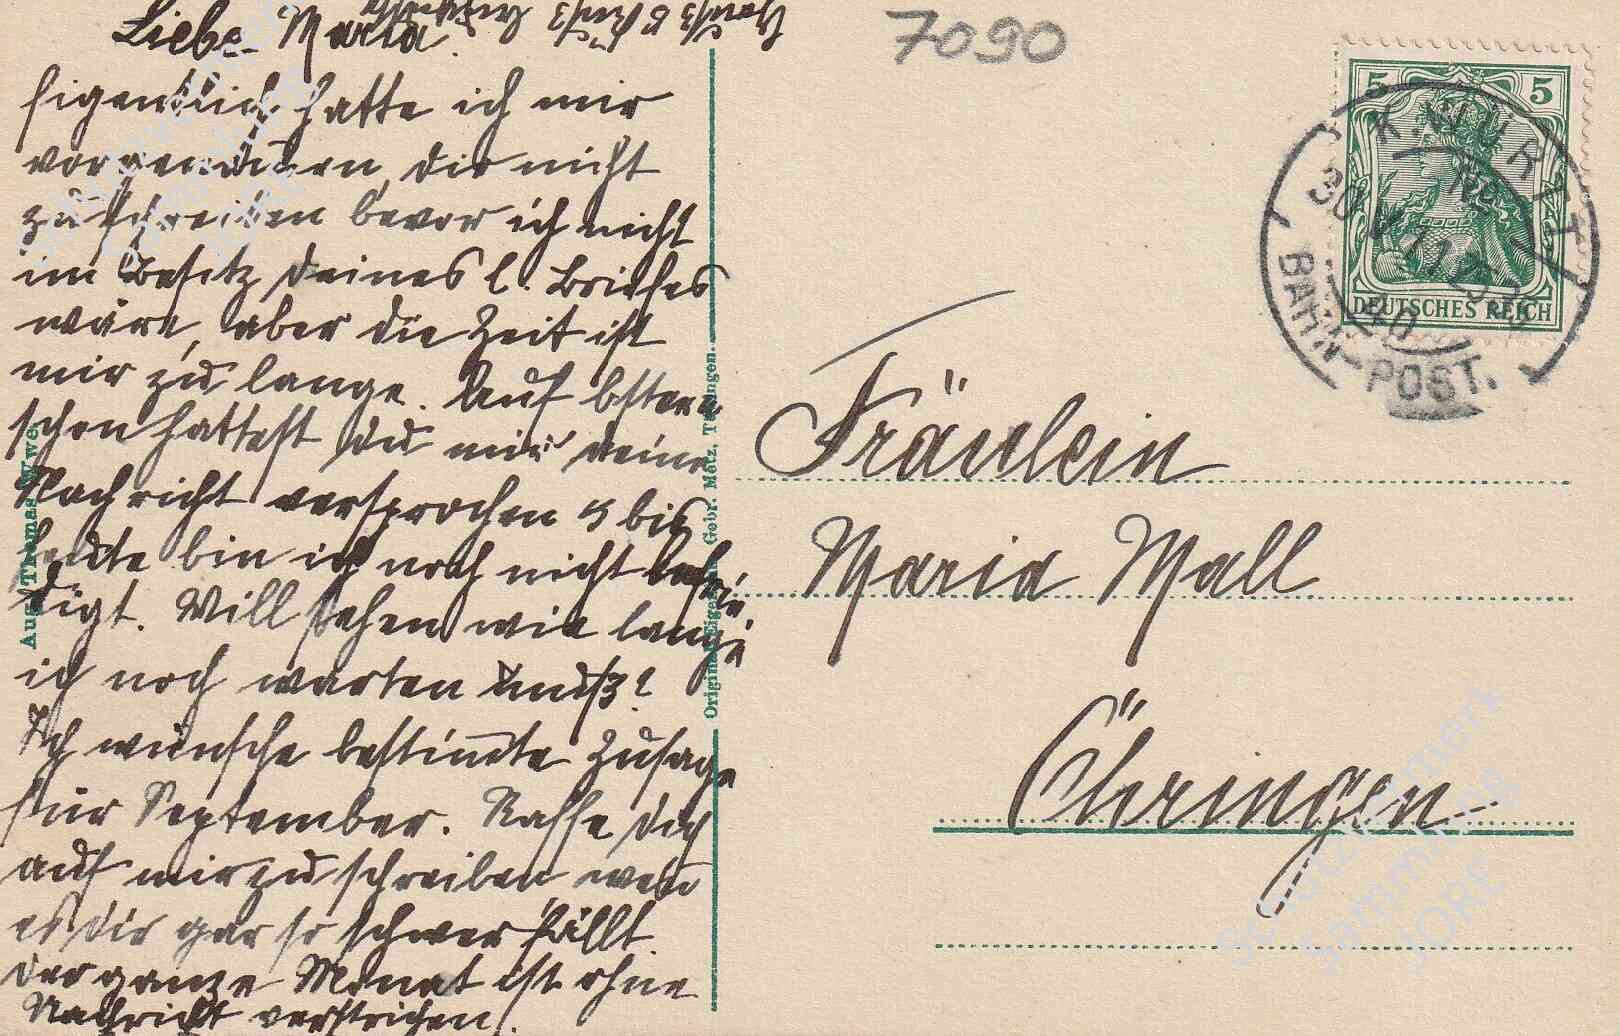 Liebe Maria.
Eigentlich hatte ich mir
vorgenommen, dir nicht
zu schreiben bevor ich nicht
im Besitz deines l. Briefes
wäre, aber die Zeit ist
mir zu lange. Auf Ostern
schon hattest du mir deine
Nachricht versprochen & bis
heute bin ich noch nicht befrie
digt. Will sehen wie lange
ich noch warten muß?
Ich wünsche bestimmte Zusage
für September. Raffe dich
auf mir zu schreiben wenn
es dir gar so schwer fällt.
Der ganze Monat ist ohne
Nachricht verstrichen.
Gruß & Kuß
7090
5 5
DEUTSCHES REICH
K.WÜRTT.
BAHN-POST.
Fräulein
Maria Mall
Öhringen
Aug. Thomas Wwe.
Original-Eigent. Gebr. Metz, Tübingen.
Sammlung